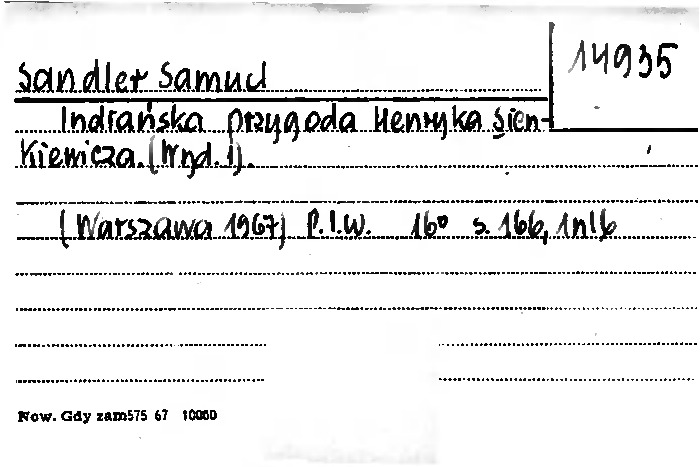 14935
Sandler Samuel
Indiańska przygoda Henryka Sien-
kiewicza. (Wyd. 1).
(Warszawa 1967) P.I.W. 16° s. 166, 1nlb
Now. Gdy zam575 67 10000